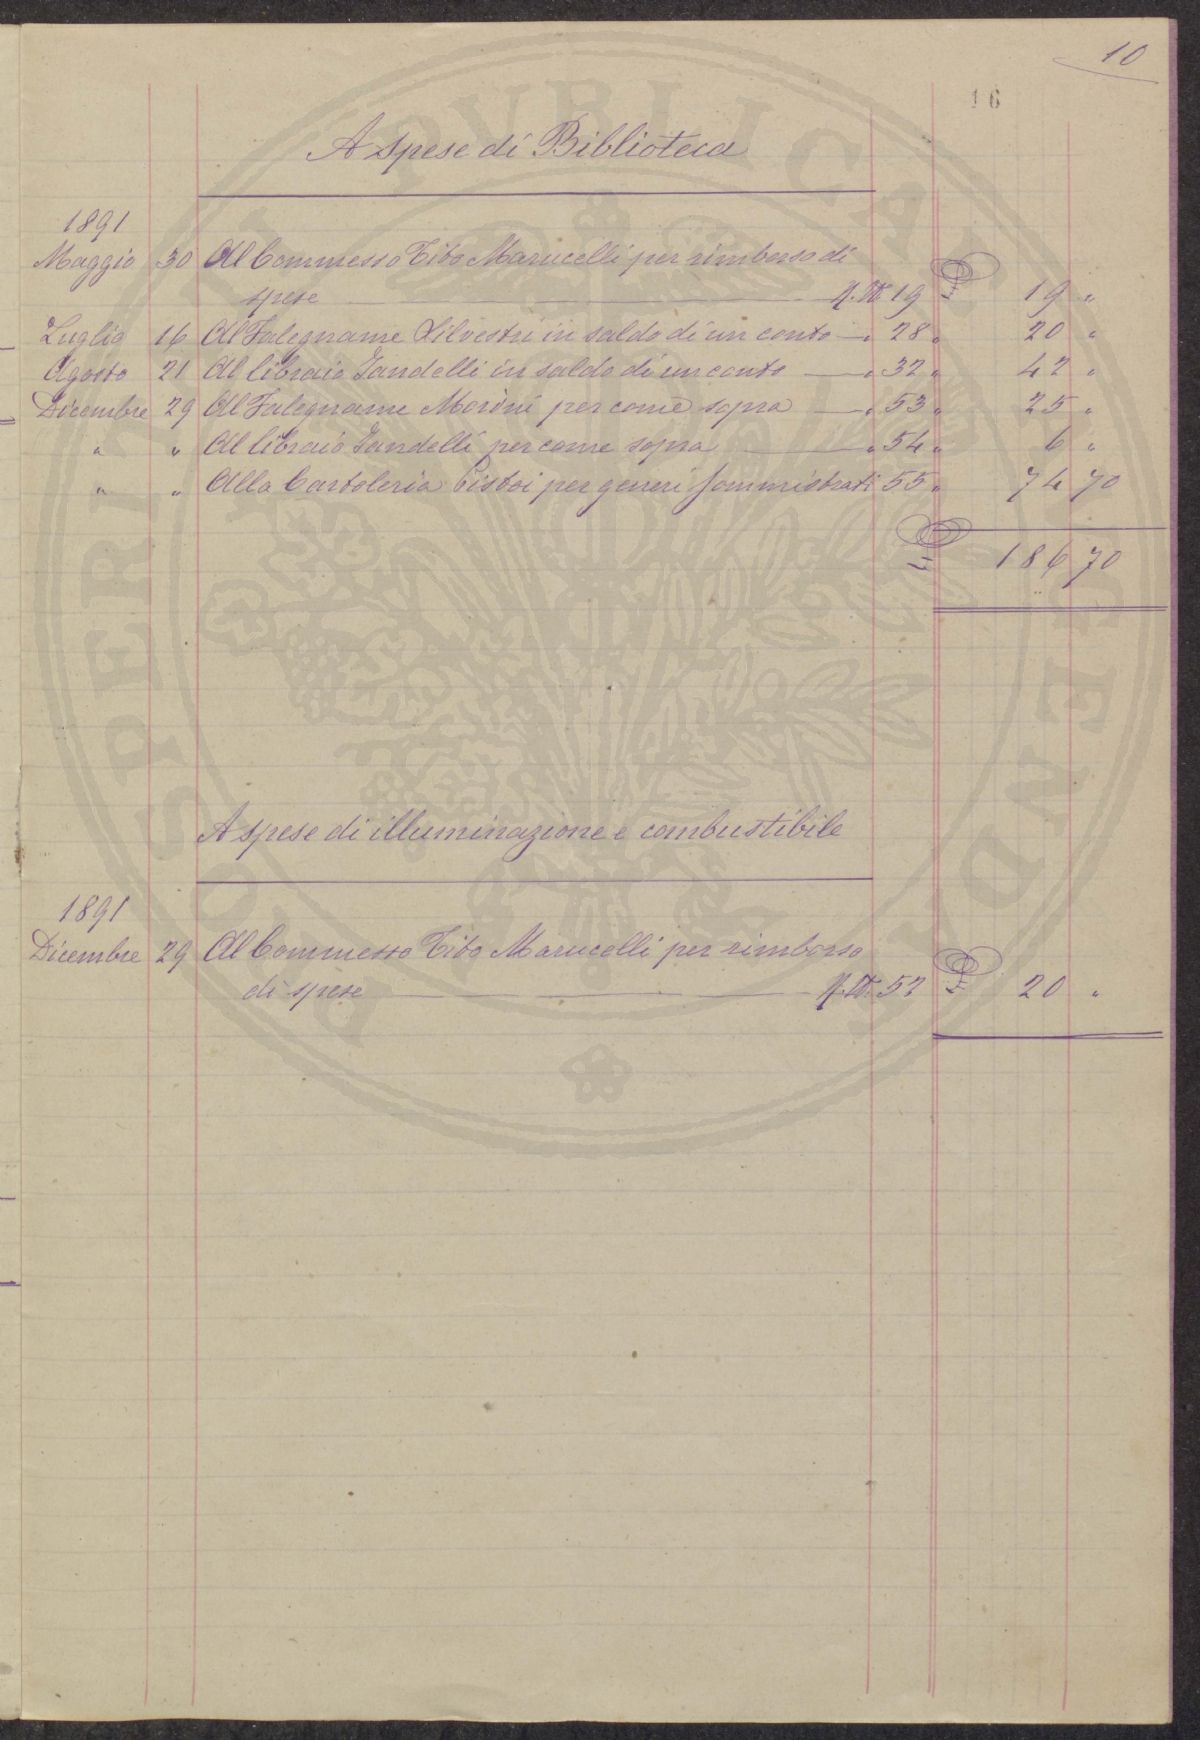 10
16
A spese di Biblioteca
1891
Maggio 30 Al Commesso Tito Marucelli per rimborso di
spese 19 £ 19 "
Luglio 16 Al Falegname Silvestri in saldo di un conto " 28 " 20 "
Agosto 21 Al libraio Jandelli in saldo di un conto " 32 " 42 "
Dicembre 29 Al Falegname Morini per come sopra " 53 " 25 "
" " Al libraio Jandelli per come sopra " 54 " 6 "
" " Alla Cartoleria Pistoi per generi somministrati 55 " 74 70
£ 186 70
A spese di illuminazione e combustibile
1891
Dicembre 29 Al Commesso Tito Marucelli per rimborso
di spese 52 £ 20 "
PROSPERITATI PUBLICAE AUGENDAE